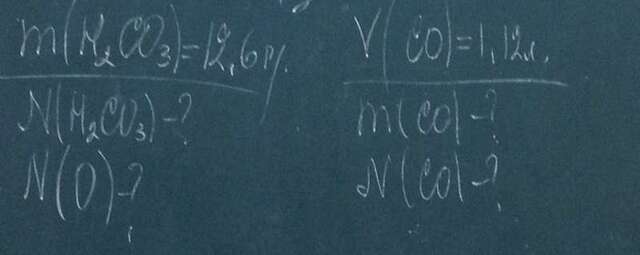 m(H₂CO₃)=12,6 г.
N(H₂CO₃)-?
N(O)-?
V(CO)=1,12л.
m(CO)-?
N(CO)-?